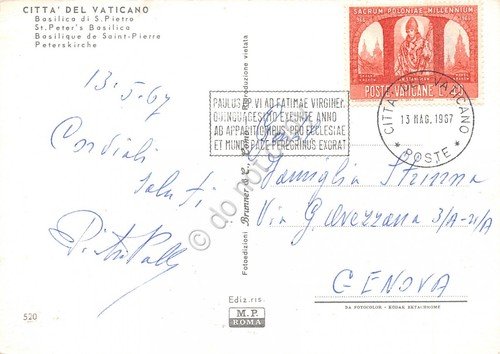 CITTA' DEL VATICANO
Basilica di S. Pietro
St. Peter's Basilica
Basilique de Saint-Pierre
Peterskirche
SACRUM POLONIAE MILLENNIUM
POSTE VATICANE
CITTA' DEL VATICANO
13 MAG. 1967
POSTE
PAULUS PP. VI AD FATIMAE VIRGINEM
QUINQUAGESIMO EXEUNTE ANNO
AB APPARITIONIBUS PRO ECCLESIAE
ET MUNDI PACE PEREGRINUS EXORAT
13-5-67
Cordiali
saluti
Famiglia
Via G. Avezzana 3/A-21/A
GENOVA
Fotoedizioni Brunner & C., Como Riproduzione vietata
Ediz. ris.
M.P.
ROMA
DA FOTOCOLOR - KODAK EKTACHROME
520